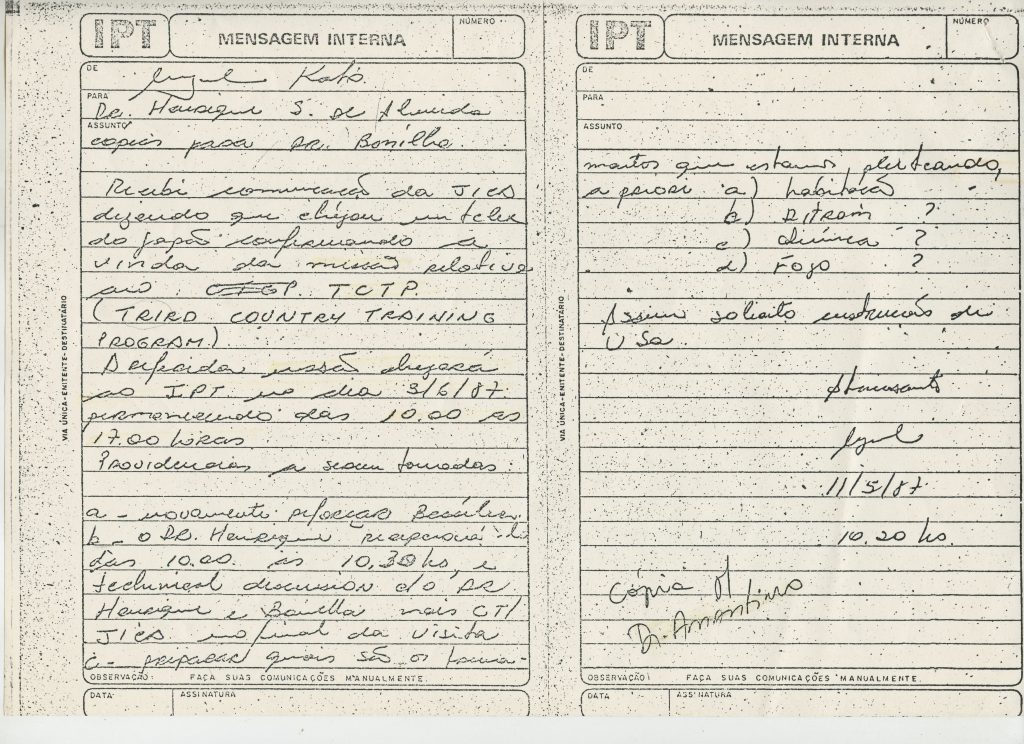 IPT MENSAGEM INTERNA NÚMERO
DE Kato
PARA
Dr. Henrique S. de Almeida
ASSUNTO
copias para DR. Bonilha.
Recebi comunicação da JICA
dizendo que chegou um telex
do Japão confirmando a
vinda da missão relativa
ao TCTP.
(THIRD COUNTRY TRAINING
PROGRAM.)
Referida missão chegará
ao IPT no dia 3/6/87
permanecendo das 10.00 às
17.00 horas
Providencias a serem tomadas
a - novamente reforçar Brasilia.
b - o DR. Henrique
das 10.00 às 10,30 hs, e
technical discussion c/o DR
Henrique e Bonilha mais CTI
JICA no final da visita
c - preparar quais são os
VIA ÚNICA-EMITENTE-DESTINATÁRIO
OBSERVAÇÃO: FAÇA SUAS COMUNICAÇÕES MANUALMENTE.
DATA ASSINATURA
IPT MENSAGEM INTERNA NÚMERO
DE
PARA
ASSUNTO
que estamos pleiteando,
a priori a) habitação
b) DITRAM ?
c) Química ?
d) Fogo ?
Assim solicito instruções de
V Sa.
11/5/87
10.20 hs.
Cópia p/
Dr. Amantino
VIA ÚNICA-EMITENTE-DESTINATÁRIO
OBSERVAÇÃO: FAÇA SUAS COMUNICAÇÕES MANUALMENTE.
DATA ASSINATURA